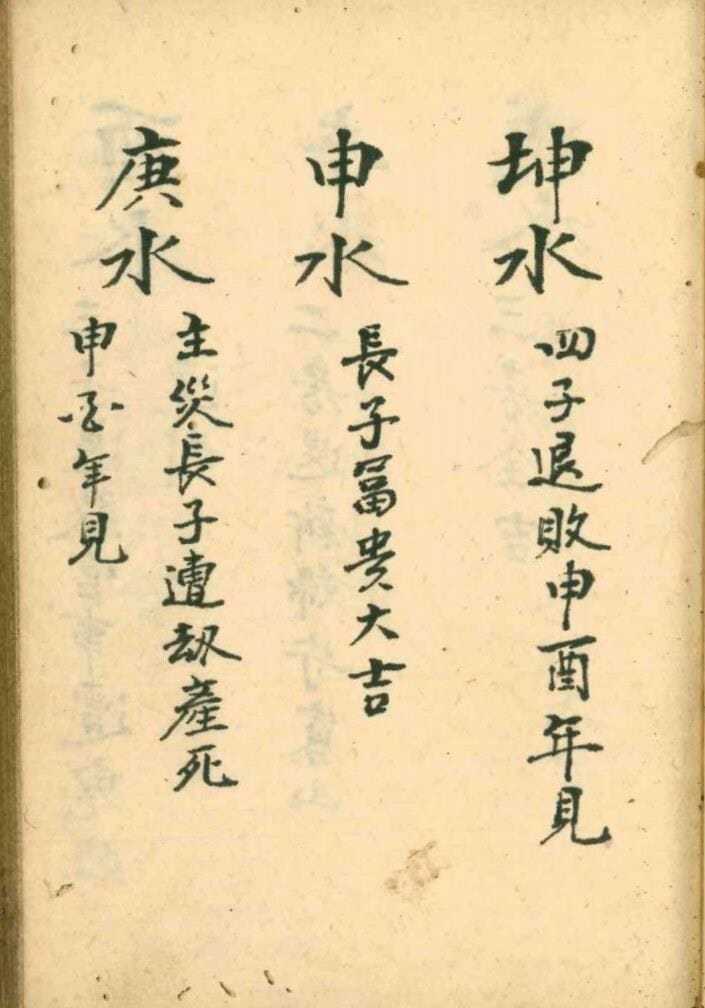 坤水
四子退敗申酉年見
申水
長子冨貴大吉
庚水
主災長子遭劫產死
申年見